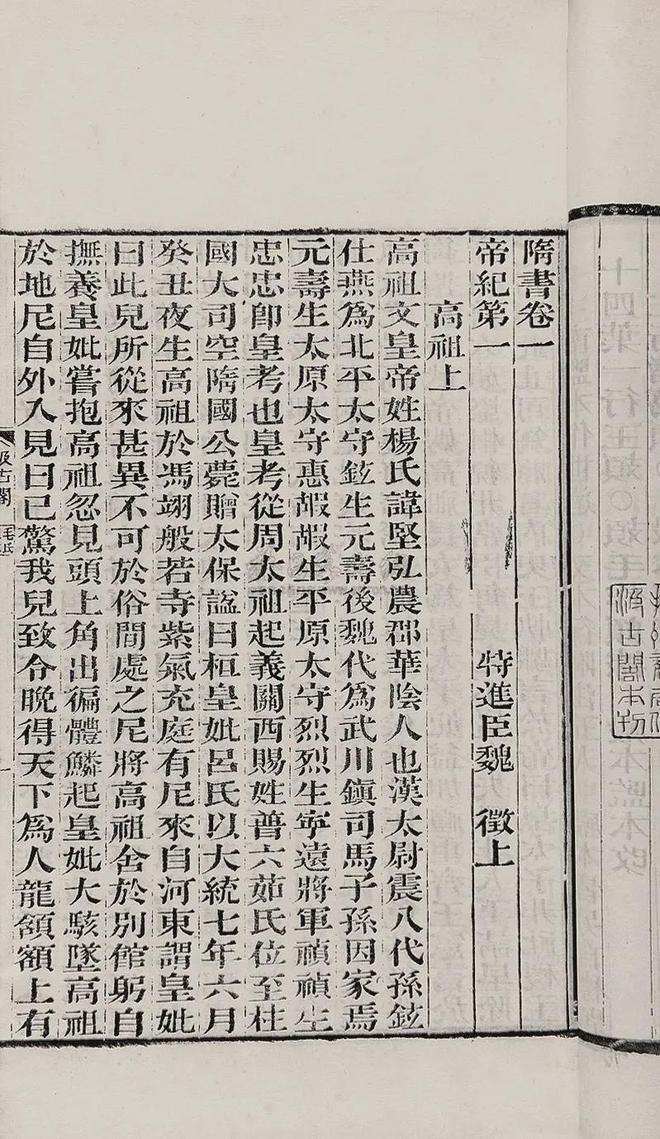 隋書卷一
帝紀第一 特進臣魏 徵上
高祖上
高祖文皇帝姓楊氏諱堅弘農郡華陰人也漢太尉震八代孫鉉
仕燕爲北平太守鉉生元壽後魏代爲武川鎮司馬子孫因家焉
元壽生太原太守惠嘏嘏生平原太守烈烈生寧遠將軍禎禎生
忠忠卽皇考也皇考從周太祖起義關西賜姓普六茹氏位至柱
國大司空隋國公薨贈太保謚曰桓皇妣呂氏以大統七年六月
癸丑夜生高祖於馮翊般若寺紫氣充庭有尼來自河東謂皇妣
曰此兒所從來甚異不可於俗間處之尼將高祖舍於別館躬自
撫養皇妣嘗抱高祖忽見頭上角出徧體鱗起皇妣大駭墜高祖
於地尼自外入見曰已驚我兒致令晚得天下爲人龍頷額上有
汲古閣
毛氏
汲古閣本挍